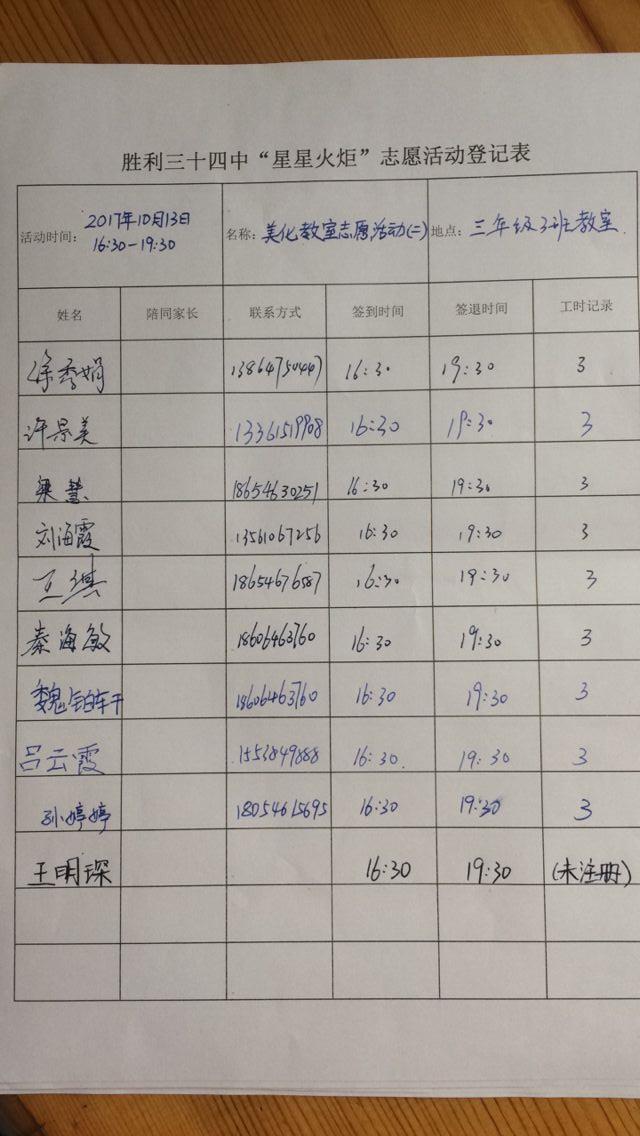 胜利三十四中“星星火炬”志愿活动登记表
活动时间： 2017年10月13日 16:30-19:30 名称： 美化教室志愿活动(二) 地点： 三年级3班教室.
姓名 陪同家长 联系方式 签到时间 签退时间 工时记录
徐秀娟 13864750447 16:30 19:30 3
许景美 13361519908 16:30 19:30 3
梁慧 18654630251 16:30 19:30 3
刘海霞 13561067256 16:30 19:30 3
王琪 18654676587 16:30 19:30 3
秦海敏 18606463760 16:30 19:30 3
魏铂轩 18606463760 16:30 19:30 3
吕云霞 1553849888 16:30. 19:30 3
孙婷婷 18054615695 16:30 19:30 3
王明琛 16:30 19:30 (未注册)